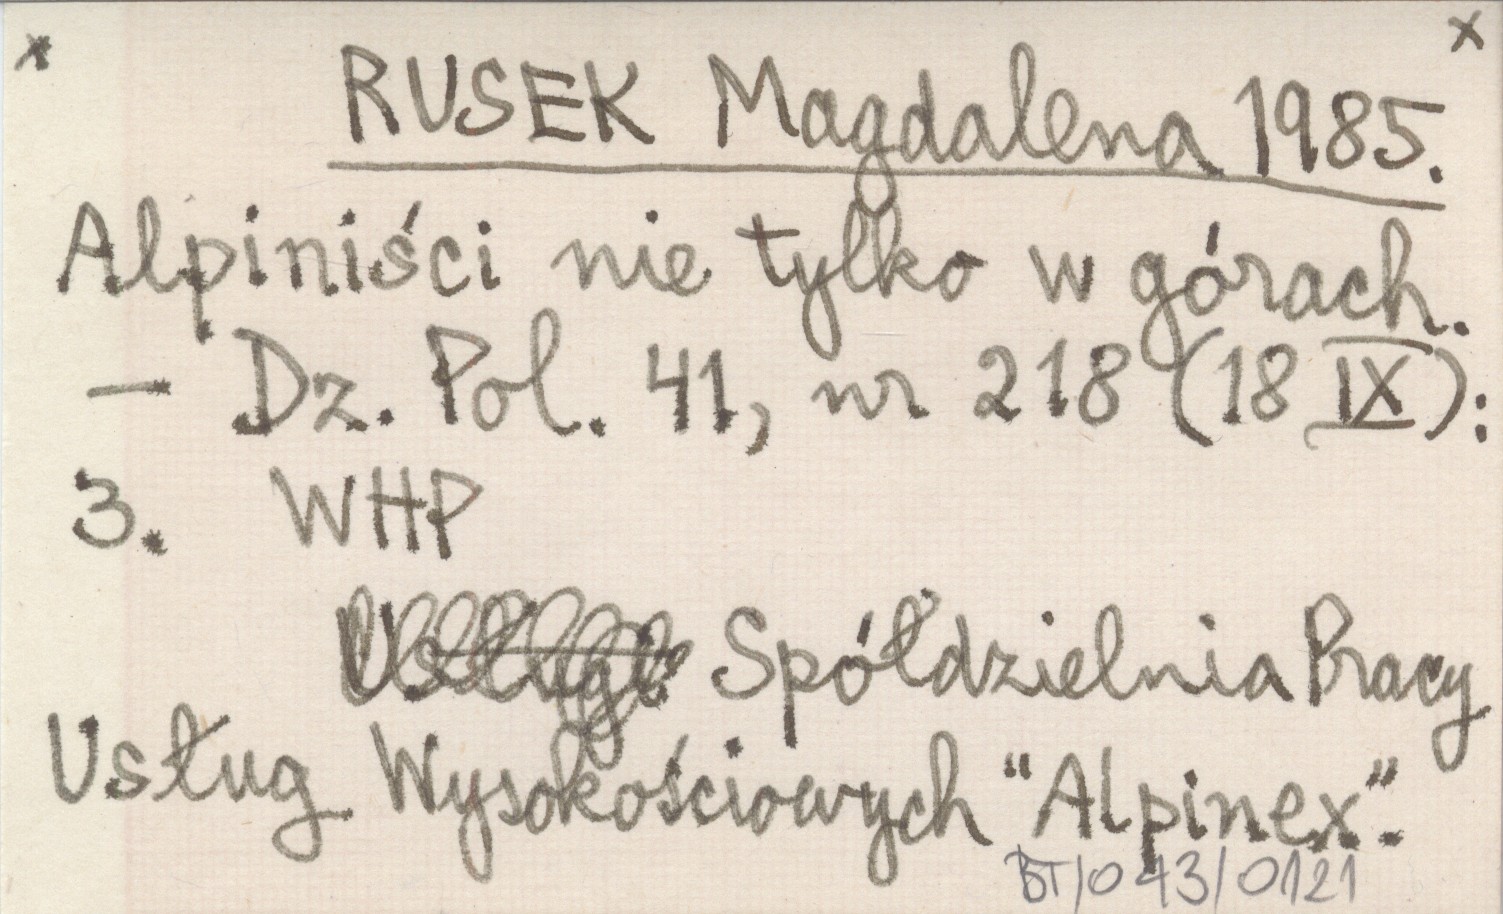 x x
RUSEK Magdalena 1985.
Alpiniści nie tylko w górach.
– Dz. Pol. 41, nr 218 (18 IX):
3. WHP
Spółdzielnia Pracy
Usług Wysokościowych "Alpinex".
BT/043/0121